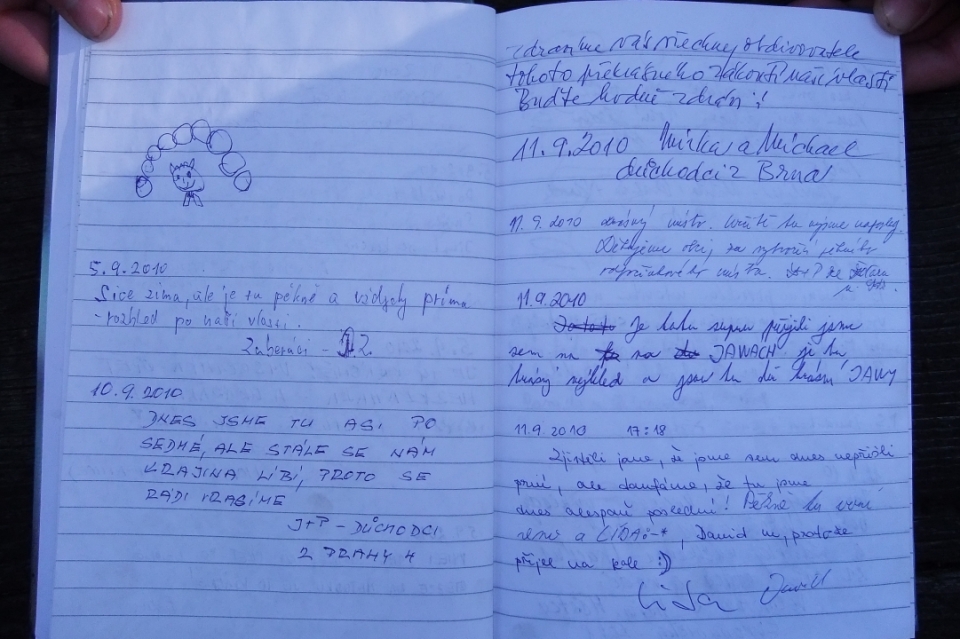 5.9.2010
Sice zima, ale je tu pěkně a vždycky prima
rozhled po naší vlasti.
10.9.2010
DNES JSME TU ASI PO
SEDMÉ, ALE STÁLE SE NÁM
KRAJINA LÍBÍ, PROTO SE
RÁDI VRACÍME
J+P - DŮCHODCI
Z PRAHY 4
Zdravíme vás všechny obdivovatele
tohoto překrásného zákoutí naší vlasti
Buďte hodně zdrávi!
11.9.2010 Mirka a Michael
důchodci z Brna
11.9.2010 místo. Určitě tu nejsme naposled.
Děkujeme obci, za vytvoření
místa.
11.9.2010
Je tohu super přijeli jsme
sem na na JAWACH je tu
krásný výhled a jsou tu dvě krásný JAWY
11.9.2010 17:18
Zjistili jsme, že jsme sem dnes nepřišli
první, ale doufáme, že tu jsme
dnes alespoň poslední! Pěkně tu
a LÍDA :-*, David ne, protože
přijel na kole :))
Lída David